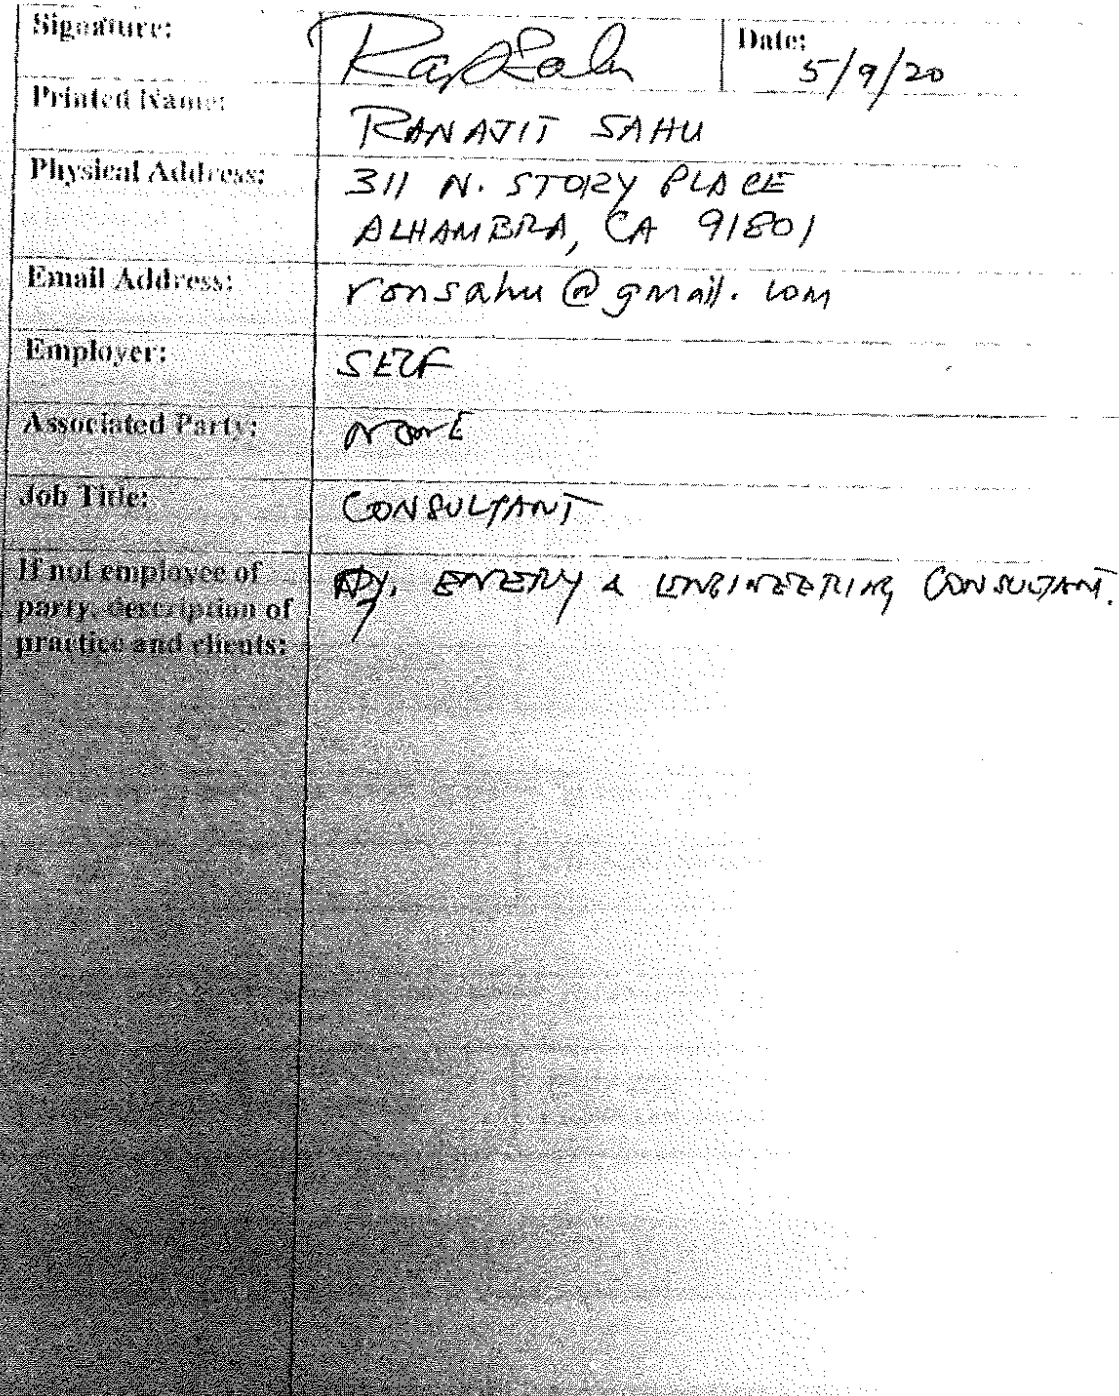 Signature: Date:
5/9/20
Printed Name: RANAJIT SAHU
Physical Address: 311 N. STORY PLACE
ALHAMBRA, CA 91801
Email Address: ronsahu@gmail.com
Employer: SELF
Associated Party: NONE
Job Title: CONSULTANT
If not employee of
party, description of
practice and clients:
ENERGY & ENGINEERING CONSULTANT.